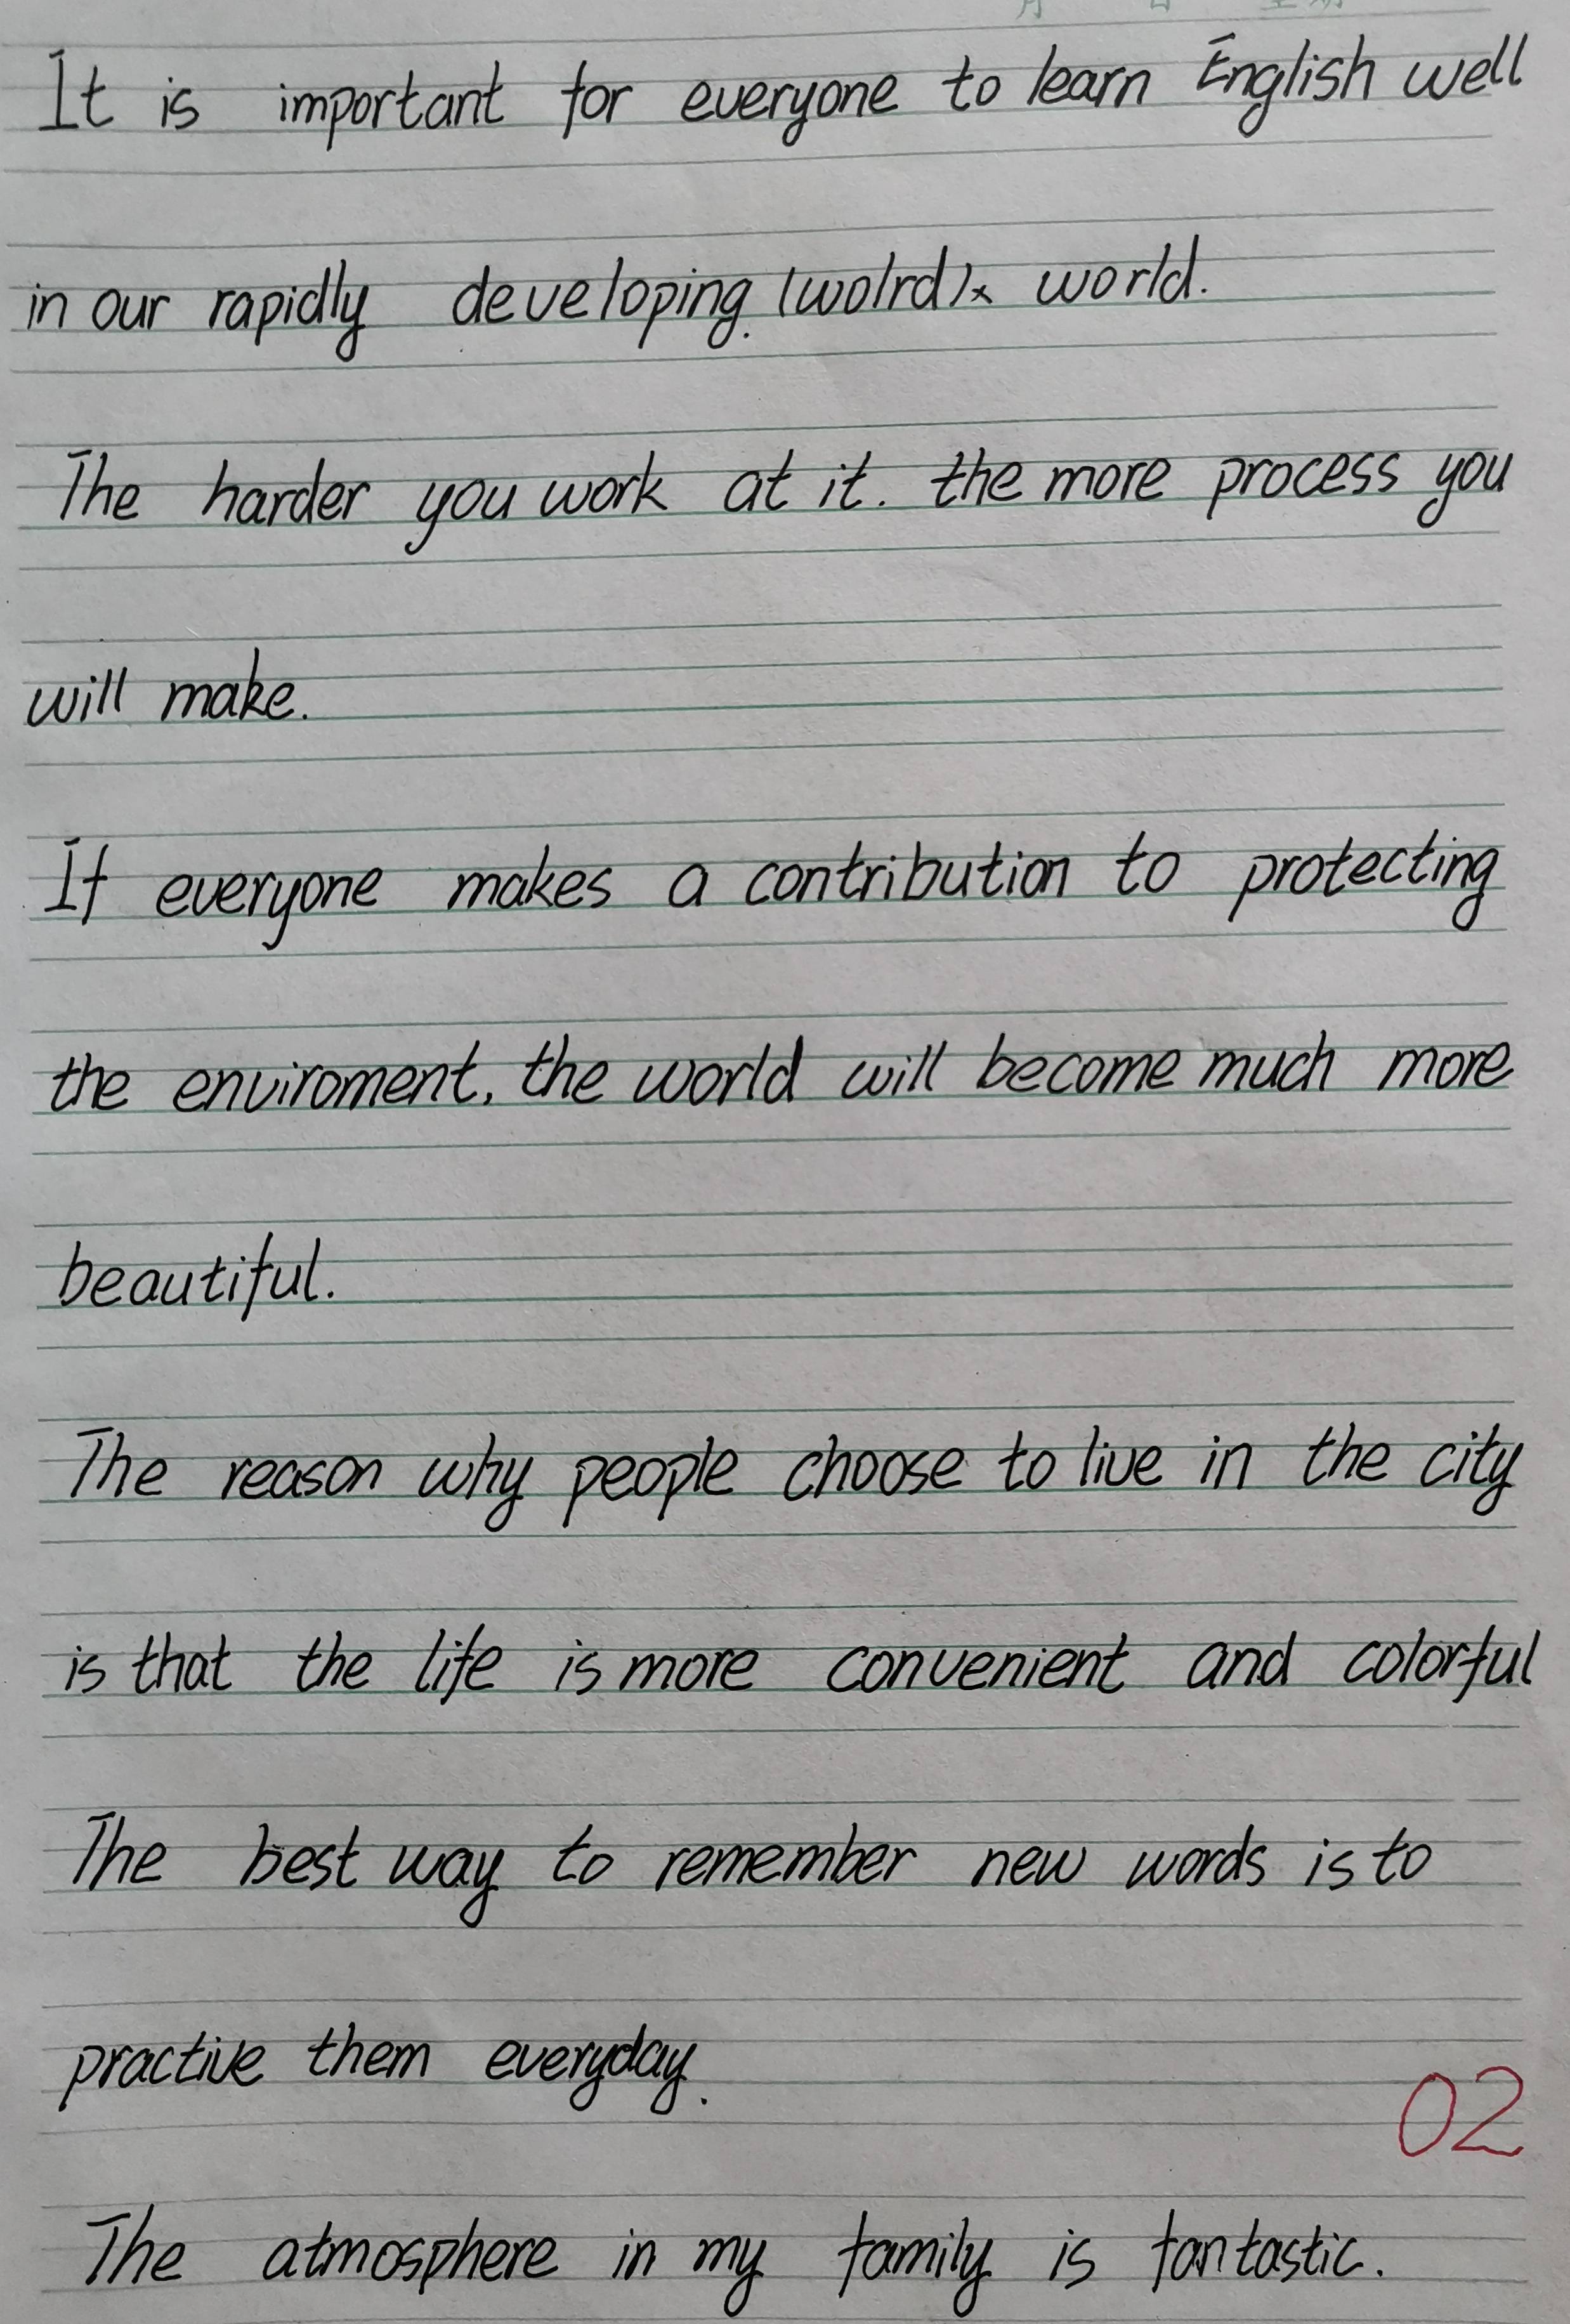 It is important for everyone to learn English well
in our rapidly developing. (wolrd)× world.
The harder you work at it. the more process you
will make.
If everyone makes a contribution to protecting
the enviroment, the world will become much more
beautiful.
The reason why people choose to live in the city
is that the life is more convenient and colorful
The best way to remember new words is to
practive them everyday.
02
The atmosphere in my family is fantastic.